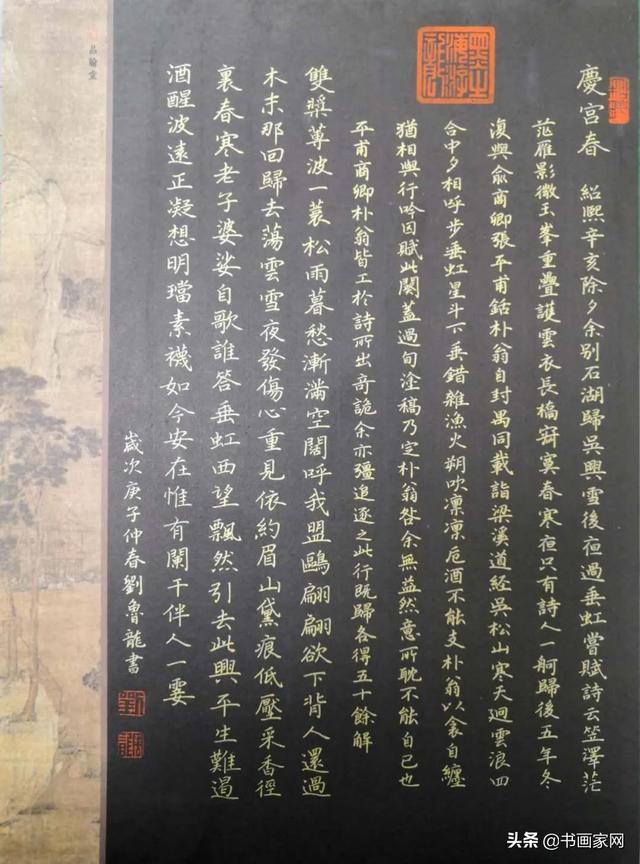 慶宫春 紹熙辛亥除夕余别石湖歸吴興雪後夜過垂虹嘗賦詩云笠澤茫
茫雁影微玉峯重疊護雲衣長橋寂寞春寒夜只有詩人一舸歸後五年冬
復與俞商卿張平甫銛朴翁自封禺同載詣梁溪道經吴松山寒天迥雲浪四
合中夕相呼步垂虹星斗下垂錯雜漁火朔吹凛凛卮酒不能支朴翁以衾自纏
猶相與行吟因賦此闋蓋過旬塗稿乃定朴翁咎余無益然意所耽不能自已也
平甫商卿朴翁皆工於詩所出奇詭余亦彊追逐之此行既歸各得五十餘解
雙槳蓴波一蓑松雨暮愁漸滿空闊呼我盟鷗翩翩欲下背人還過
木末那回歸去蕩雲雪夜發傷心重見依約眉山黛痕低壓采香徑
裏春寒老子婆娑自歌誰答垂虹西望飄然引去此興平生難遏
酒醒波遠正凝想明璫素襪如今安在惟有闌干伴人一霎
歲次庚子仲春劉魯龍書
品翰堂
头条@书画家网